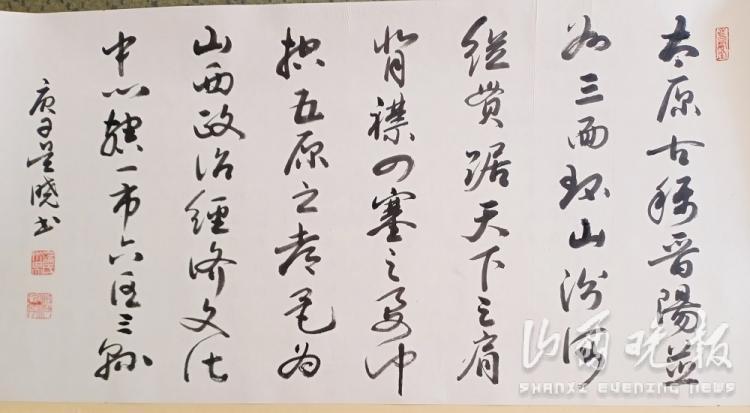 太原古稱晋陽並
州三面环山汾河
纵贯踞天下之肩
背襟四塞之要冲
控五原之都邑为
山西政治經济文化
中心辖一市六区三縣
庚子星晓书
山西晚报
SHANXI EVENING NEWS